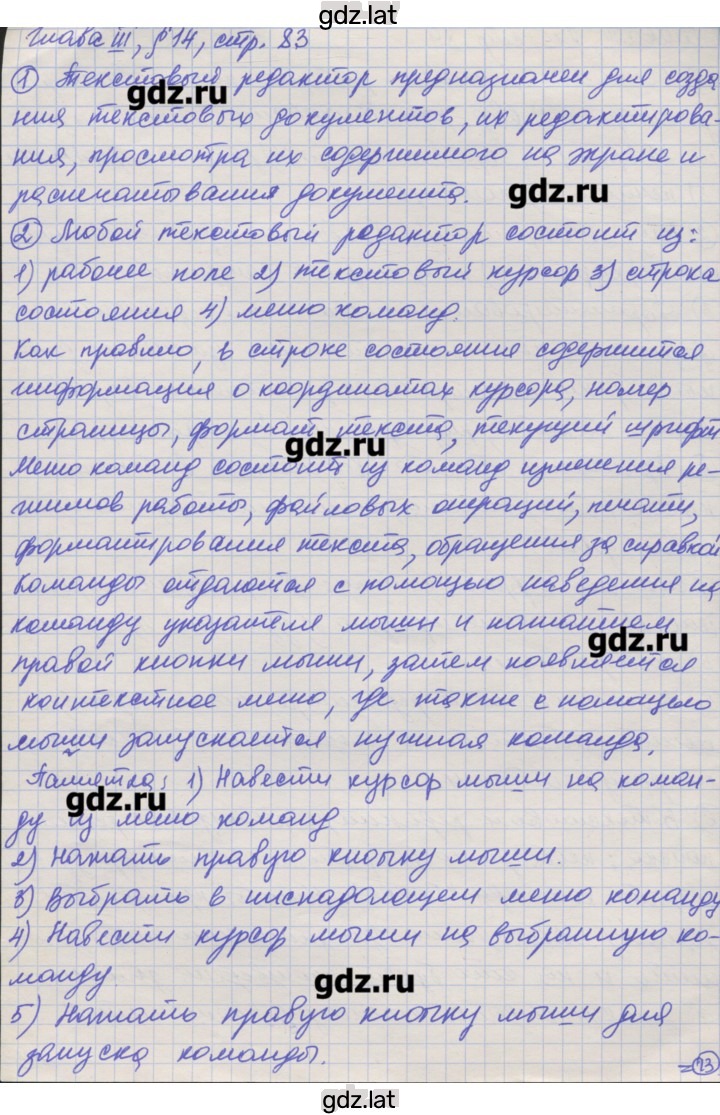 gdz.lat
Глава III, §14, стр. 83
① Текстовый редактор предназначен для созда
gdz.ru
ния текстовых документов, их редактирова-
ния, просмотра их содержимого на экране и
распечатывания документа.
gdz.ru
② Любой текстовый редактор состоит из:
1) рабочее поле 2) текстовый курсор 3) строка
состояния 4) меню команд.
Как правило, в строке состояния содержится
информация о координатах курсора, номер
страницы, формат текста, текущий шрифт
gdz.ru
Меню команд состоит из команд изменения ре-
жимов работы, файловых операций, печати,
форматирования текста, обращения за справкой
Команды отдаются с помощью наведения на
команду указателя мыши и нажатием
gdz.ru
правой кнопки мыши, затем появляется
контекстное меню, где также с помощью
мыши запускается нужная команда.
Памятка: 1) Навести курсор мыши на коман-
gdz.ru
ду из меню команд
2) Нажать правую кнопку мыши.
3) Выбрать в ниспадающем меню команду
4) Навести курсор мыши на выбранную ко-
манду.
gdz.ru
5) Нажать правую кнопку мыши для
запуска команды.
=23
gdz.lat